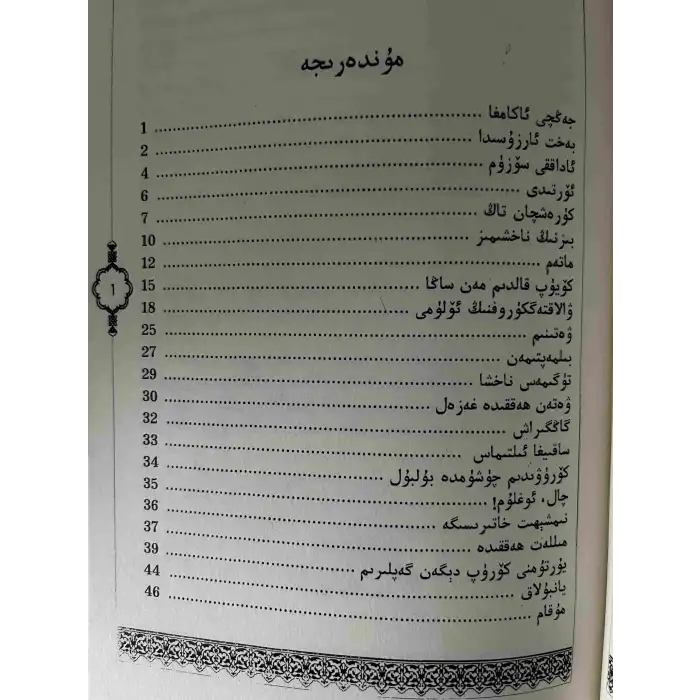 مۇندەرىجە
جەڭچى ئاكامغا ........ 1
بەخت ئارزۇسىدا ........ 2
ئاداققى سۆزۈم ........ 4
ئۆرتىدى ........ 6
كۈرەشچان تاڭ ........ 7
بىزنىڭ ناخشىمىز ........ 10
ماتەم ........ 12
كۆيۈپ قالدىم مەن ساڭا ........ 15
ۋالاقتەگكۈروفنىڭ ئۆلۈمى ........ 18
ۋەتىنىم ........ 25
بىلمەپتىمەن ........ 27
تۈگىمەس ناخشا ........ 29
ۋەتەن ھەققىدە غەزەل ........ 30
گاڭگىراش ........ 32
ساقىيغا ئىلتىماس ........ 33
كۆرۈۋىدىم چۈشۈمدە بۇلبۇل ........ 34
چال، ئوغلۇم! ........ 35
نىمشېھىت خاتىرىسىگە ........ 36
مىللەت ھەققىدە ........ 37
يۇرتۇمنى كۆرۈپ دېگەن گەپلىرىم ........ 39
يانبۇلاق ........ 44
مۇقام ........ 46
١